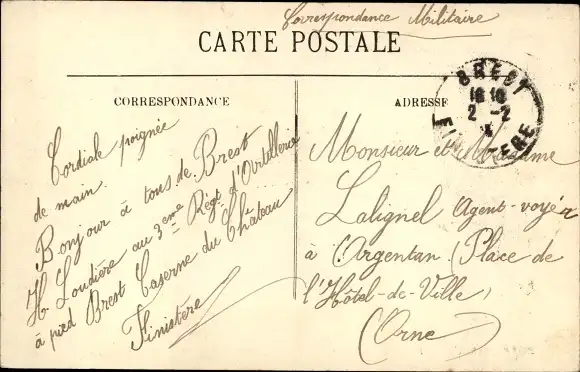 Correspondance Militaire
CARTE POSTALE
CORRESPONDANCE
ADRESSE
Cordiale poignée
de main.
Bonjour à tous de Brest
H. Loudière au 3ème Régt d'Artillerie
à pied Brest Caserne du Château
Finistère
BREST
18 10
2 -2
FI TERE
Monsieur et Madame
Lalignel Agent-voyer
à Argentan (Place de
l'Hôtel-de-Ville)
(Orne)